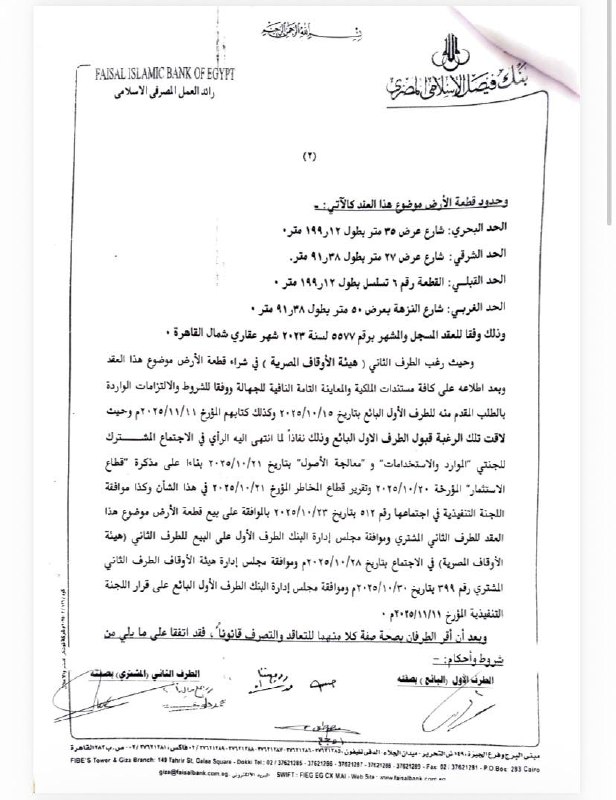 بسم الله الرحمن الرحيم
بنك فيصل الإسلامي المصري
FAISAL ISLAMIC BANK OF EGYPT
رائد العمل المصرفى الاسلامى
(٢)
وحدود قطعة الأرض موضوع هذا العقد كالآتي:ـ
الحد البحري: شارع عرض ٣٥ متر بطول ١٩٩٫١٢ متر ٠
الحد الشرقي: شارع عرض ٢٧ متر بطول ٩١٫٣٨ متر.
الحد القبلي: القطعة رقم ٦ تسلسل بطول ١٩٩٫١٢ متر ٠
الحد الغربي: شارع النزهة بعرض ٥٠ متر بطول ٩١٫٣٨ متر ٠
وذلك وفقا للعقد المسجل والمشهر برقم ٥٥٧٧ لسنة ٢٠٢٣ شهر عقاري شمال القاهرة ٠
وحيث رغب الطرف الثاني ( هيئة الأوقاف المصرية ) في شراء قطعة الأرض موضوع هذا العقد
وبعد اطلاعه على كافة مستندات الملكية والمعاينة التامة النافية للجهالة ووفقا للشروط والالتزامات الواردة
بالطلب المقدم منه للطرف الأول البائع بتاريخ ٢٠٢٥/١٠/١٥ وكذلك كتابهم المؤرخ ٢٠٢٥/١١/١١م وحيث
لاقت تلك الرغبة قبول الطرف الاول البائع وذلك نفاذاً لما انتهى اليه الرأي في الاجتماع المشترك
للجنتي "الموارد والاستخدامات" و "معالجة الأصول" بتاريخ ٢٠٢٥/١٠/٢١ بناءا على مذكرة "قطاع
الاستثمار" المؤرخة ٢٠٢٥/١٠/٢٠ وتقرير قطاع المخاطر المؤرخ ٢٠٢٥/١٠/٢١ في هذا الشأن وكذا موافقة
اللجنة التنفيذية في اجتماعها رقم ٥١٢ بتاريخ ٢٠٢٥/١٠/٢٣ بالموافقة على بيع قطعة الأرض موضوع هذا
العقد للطرف الثاني المشتري وموافقة مجلس إدارة البنك الطرف الأول على البيع للطرف الثاني (هيئة
الأوقاف المصرية) في الاجتماع بتاريخ ٢٠٢٥/١٠/٢٨م وموافقة مجلس إدارة هيئة الأوقاف الطرف الثاني
المشتري رقم ٣٩٩ بتاريخ ٢٠٢٥/١٠/٣٠م وموافقة مجلس إدارة البنك الطرف الأول البائع على قرار اللجنة
التنفيذية المؤرخ ٢٠٢٥/١١/١١م ٠
وبعد أن أقر الطرفان بصحة صفة كلا منهما للتعاقد والتصرف قانوناً، فقد اتفقا على ما يلي من
شروط وأحكام:ـ
الطرف الأول (البائع) بصفته
الطرف الثاني (المشتري) بصفته
مبنى البرج وفرع الجيزة ١٤٩ ش التحرير - ميدان الجلاء - الدقى
FIBE'S Tower & Giza Branch: 149 Tahrir St, Galaa Square - Dokki Tel : 02 / 37621285 - 37621286 - 37621287 - 37621288 - 37621289 - Fax : 02 / 37621281 - P.O.Box: 283 Cairo
giza@faisalbank.com.eg البريد الالكترونى SWIFT : FIEG EG CX MAI - Web Site : www.faisalbank.com.eg